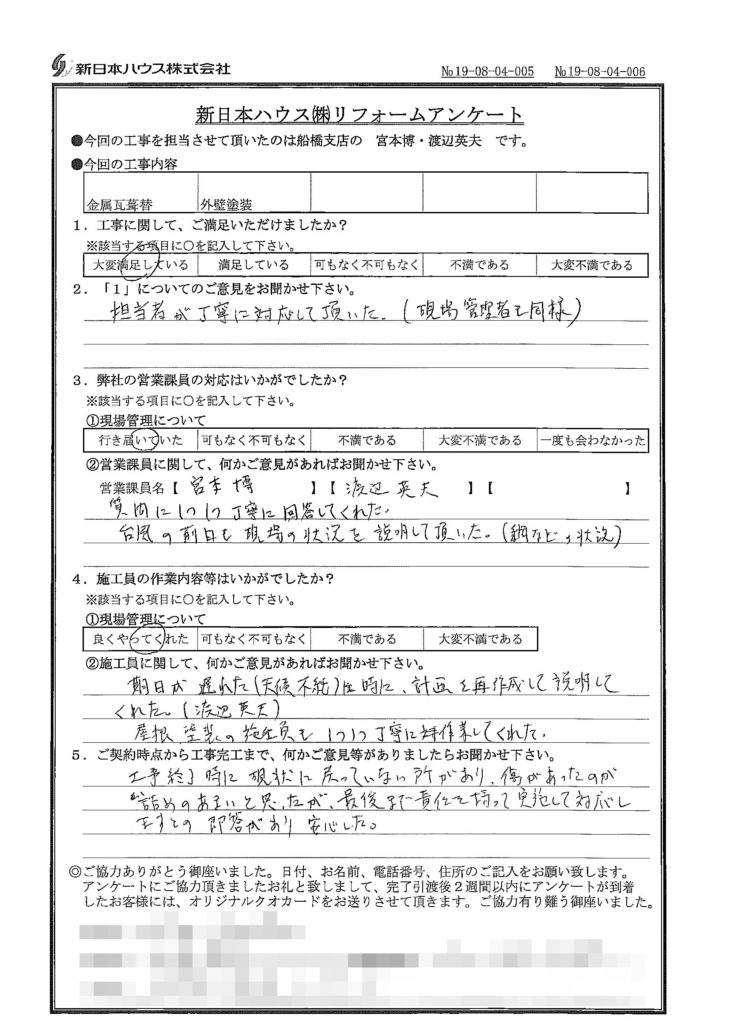 新日本ハウス株式会社 №19-08-04-005 №19-08-04-006
新日本ハウス㈱リフォームアンケート
●今回の工事を担当させて頂いたのは船橋支店の 宮本博・渡辺英夫 です。
●今回の工事内容
金属瓦葺替 外壁塗装
1．工事に関して、ご満足いただけましたか？
※該当する項目に〇を記入して下さい。
大変満足している 満足している 可もなく不可もなく 不満である 大変不満である
2．「1」についてのご意見をお聞かせ下さい。
担当者が丁寧に対応して頂いた。(現場管理者も同様)
3．弊社の営業課員の対応はいかがでしたか？
※該当する項目に〇を記入して下さい。
①現場管理について
行き届いていた 可もなく不可もなく 不満である 大変不満である 一度も会わなかった
②営業課員に関して、何かご意見があればお聞かせ下さい。
営業課員名【 宮本 博 】【 渡辺 英夫 】【 】
質問に1つ1つ丁寧に回答してくれた.
台風の前日も現場の状況を説明して頂いた。(網などの状況)
4．施工員の作業内容等はいかがでしたか？
※該当する項目に〇を記入して下さい。
①現場管理について
良くやってくれた 可もなく不可もなく 不満である 大変不満である
②施工員に関して、何かご意見があればお聞かせ下さい。
期日が遅れた(天候不純) 時に、計画を再作成して説明して
くれた。(渡辺英夫)
屋根 塗装の施工員も1つ1つ丁寧に 作業してくれた.
5．ご契約時点から工事完工まで、何かご意見等がありましたらお聞かせ下さい。
工事終了時に現状に戻っていない所があり、傷があったのが
詰めのあまいと思ったが、最後まで責任を持って実施して対応し
ますとの即答があり安心した。
◎ご協力ありがとう御座いました。日付、お名前、電話番号、住所のご記入をお願い致します。
アンケートにご協力頂きましたお礼と致しまして、完了引渡後２週間以内にアンケートが到着
したお客様には、オリジナルクオカードをお送りさせて頂きます。ご協力有り難う御座いました。